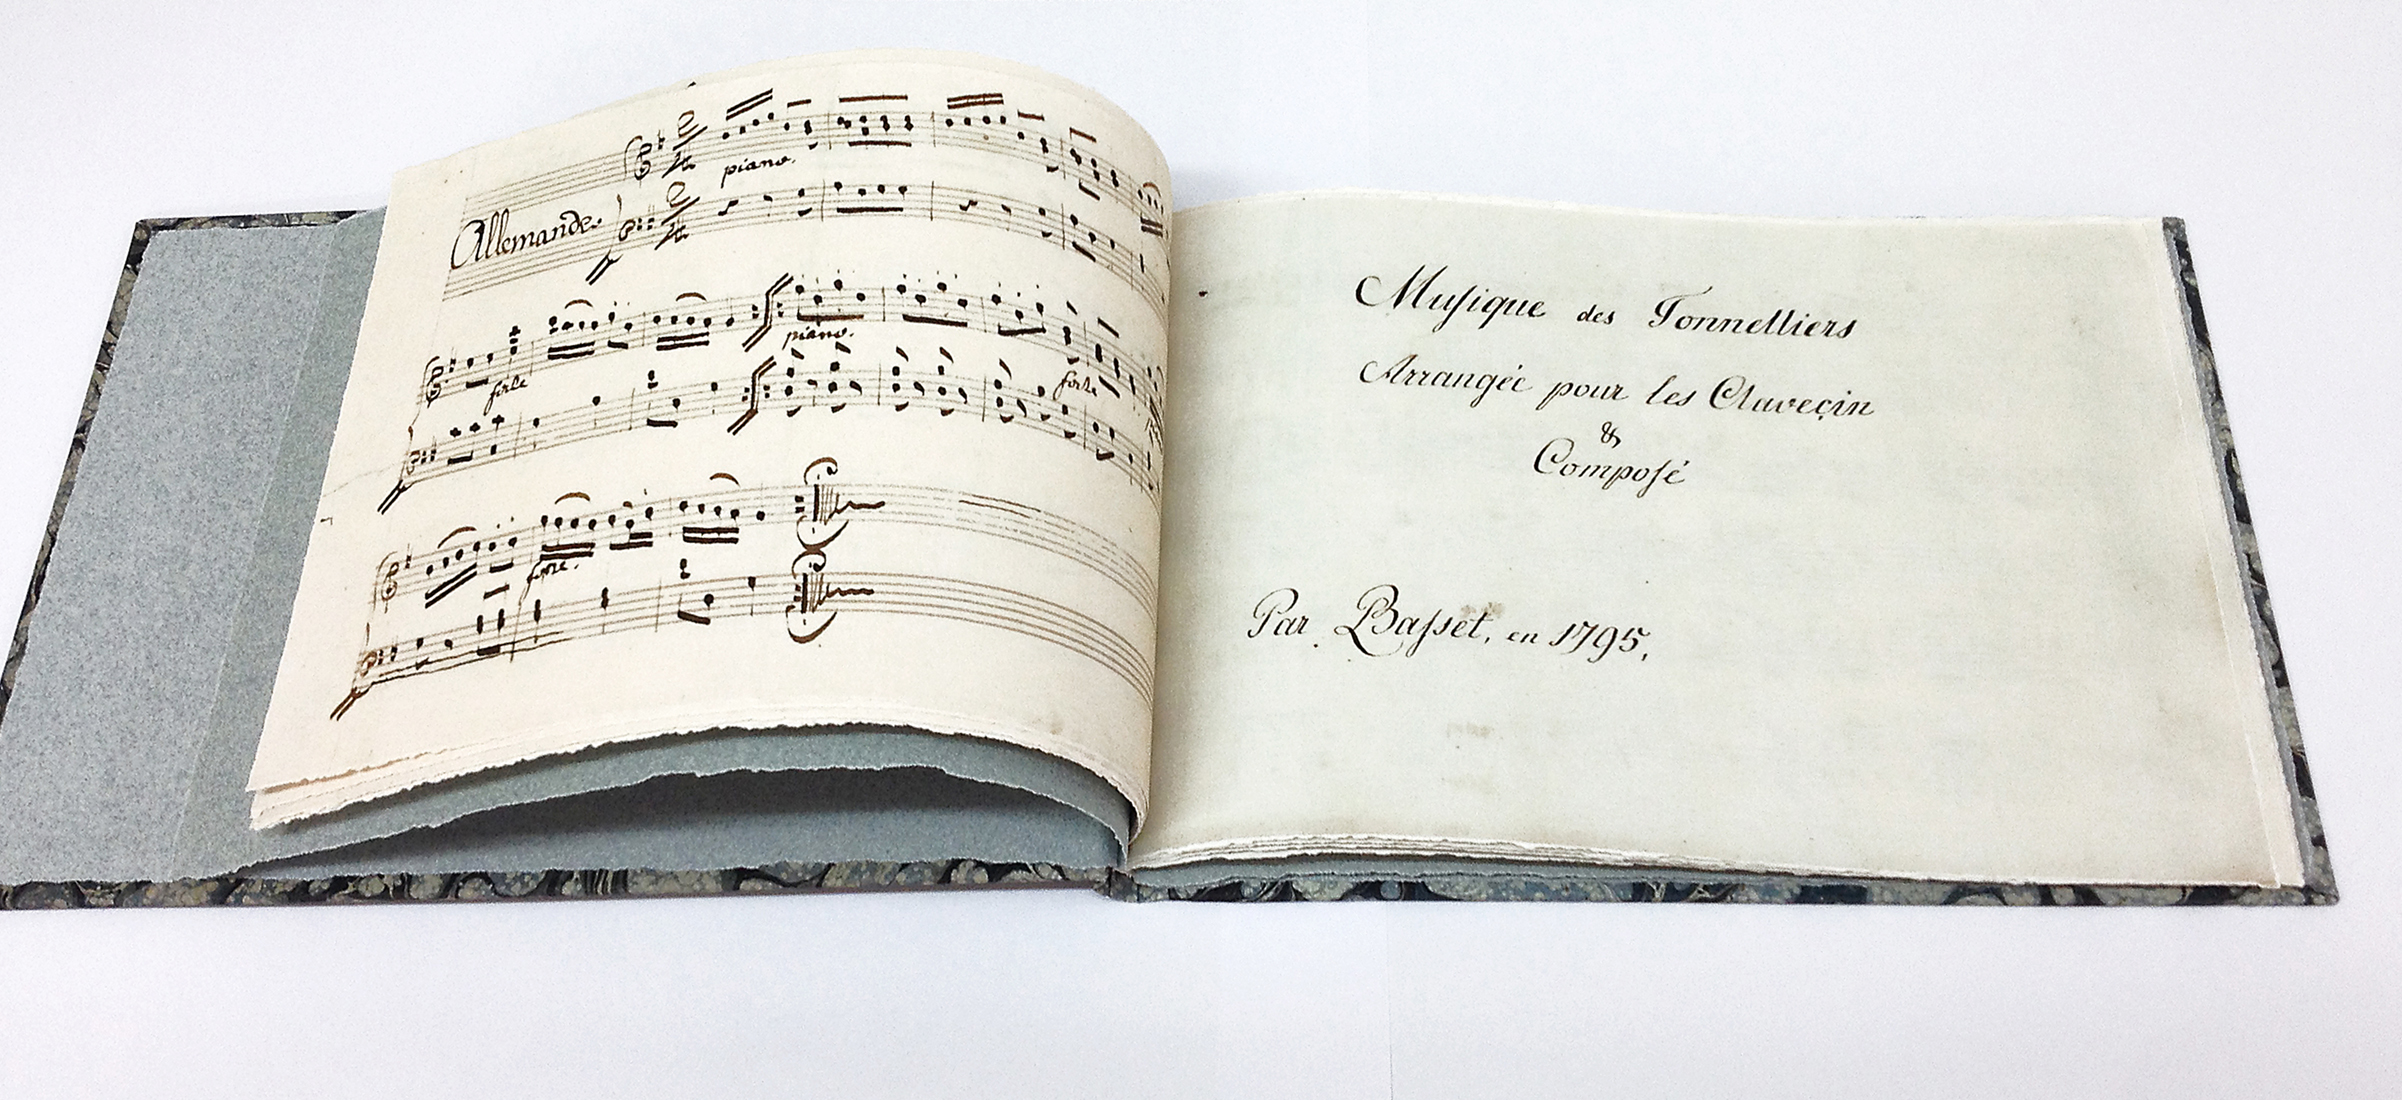 piano.
Allemande.
piano.
forte
forte
forte.
Muſique des Tonnelliers
Arrangée pour les Claveçin
&
Compoſé
Par Baſset, en 1795.